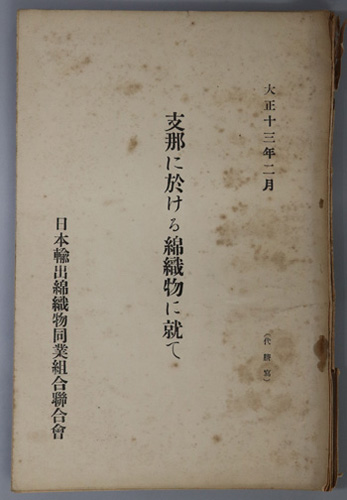 大正十三年二月
（代謄寫）
支那に於ける綿織物に就て
日本輸出綿織物同業組合聯合會